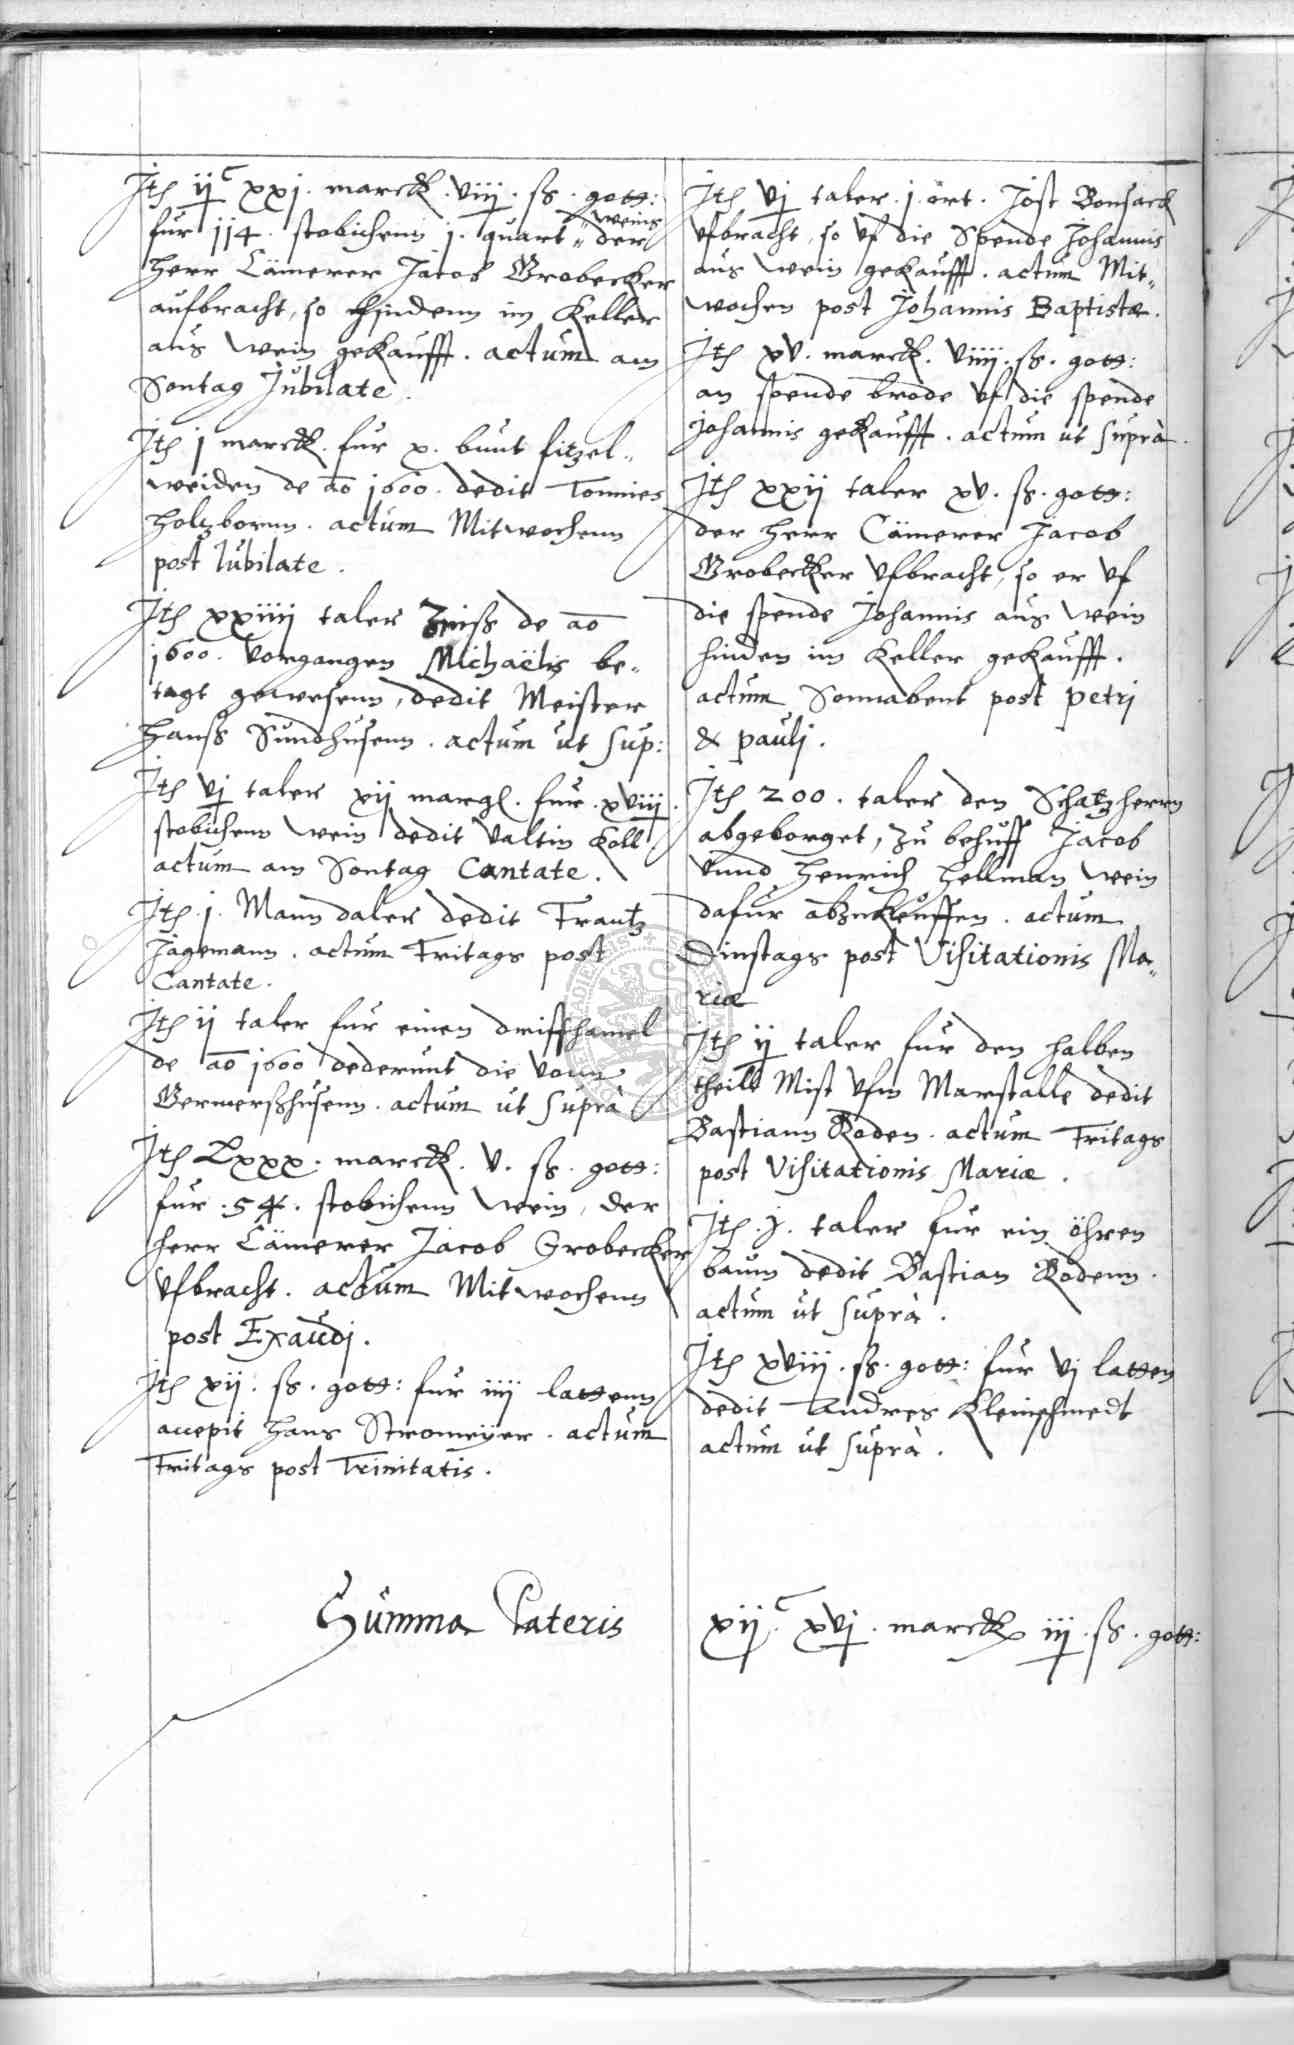 Jtem ijᶜ xxj. marck. viij. ß. gott:
fur 114. stobichenn j. quart weins der
Herr Cämerer Jacob Grobecker
aufbracht, so hindenn im Keller
aus Wein gekaufft. actum am
Sontag Jubilate.
Jtem j marck. fur x. bunt fitzel„
weiden de ao 1600. dedit Tonnies
Holtzbornn. actum Mitwochenn
post Iubilate.
Jtem xxiiij taler Zinß de ao
1600. vorgangen Michaëlis be„
tagt gewesenn, dedit Meister
Hanß Sundhusenn. actum ut sup:
Jtem vj taler xij margl. fur. xviij.
stobichenn Wein dedit Valtin Koll
actum am Sontag Cantate.
Jtem .j. Mann daler dedit Frantz
Jagemann. actum Fritags post
Cantate.
Jtem ij taler fur einen driffthamel
de ao 1600 dederunt die vonn
Germerßhusenn. actum ut suprà
Jtem Lxxx. marck. v. ß. gott:
fur .54. stobichenn Wein, der
Herr Cämerer Jacob Grobecker
vfbracht. actum Mitwochenn
post Exaudj.
Jtem xij. ß. gott: fur iiij lattenn
accepit Hans Stromeÿer. actum
Fritags post Trinitatis.
Jtem vj taler .j. ort. Jost Bonsack
vfbracht, so vf die Spende Johannis
aus Wein gekaufft. actum Mit„
wochen post Johannis Baptistæ.
Jtem xv. marck. viiij. ß. gott:
an spende brode vf die spende
Johannis gekaufft. actum ut suprà.
Jtem xxij taler xv. ß. gott:
der Herr Cämerer Jacob
Grobecker vfbracht, so er vf
die spende Johannis aus Wein
hinden im Keller gekaufft.
actum Sonnabent post Petrj
& paulj.
Jtem 200. taler den Schatzherrn
abgeborget, zu behuff Jacob
vnnd Henrich Hellman Wein
dafur abzukeuffen. actum
Dinstags post Visitationis Ma„
riæ
Jtem ij taler fur den halben
theill Mist vfm Marstalle dedit
Bastiann Roden. actum Fritags
post Visitationis Mariæ.
Jtem .j. taler fur ein öhren
baum dedit Bastian Rodenn.
actum ut suprà.
Jtem xviij. ß. gott: fur vj latten
dedit Andres Kleinschmedt
actum ut suprà.
Summa Lateris xijᶜ xvj. marck iij. ß. gott: